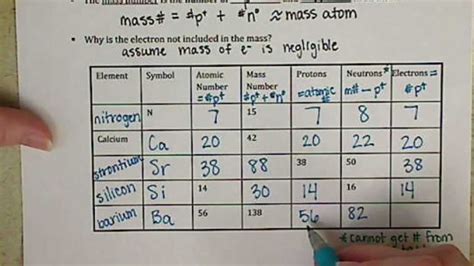 The mass number is the number of p⁺ and
mass# = #p⁺ + #n° ≈ mass atom
• Why is the electron not included in the mass?
assume mass of e⁻ is negligible
Element Symbol Atomic Number = #p⁺ Mass Number #p⁺ + #n° Protons = atomic # Neutrons* m# - p⁺ Electrons = #p⁺
nitrogen N 7 15 7 8 7
Calcium Ca 20 42 20 22 20
strontium Sr 38 88 38 50 38
silicon Si 14 30 14 16 14
barium Ba 56 138 56 82
*cannot get # from